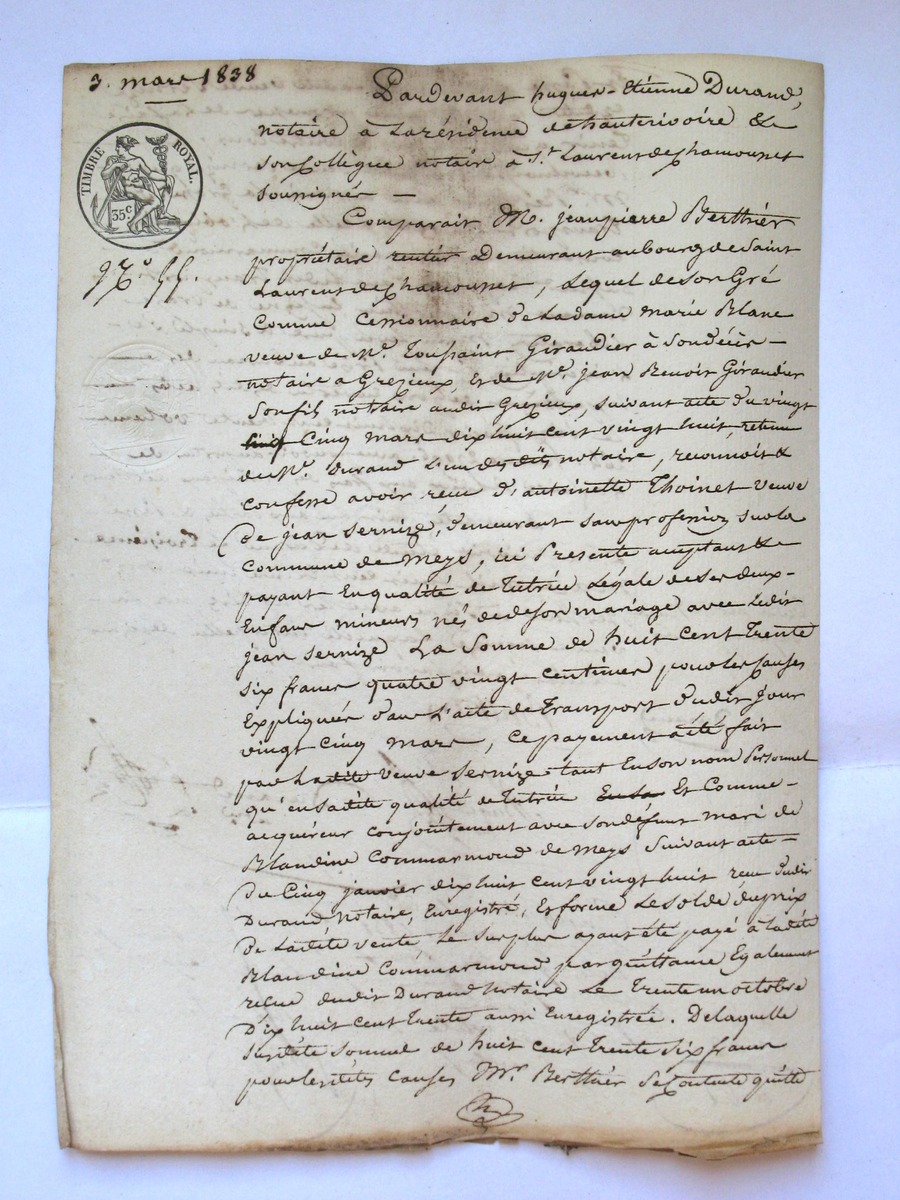 3. mars 1838
TIMBRE ROYAL.
35c
No. 55.
Pardevant hugues-Etienne Durand,
notaire à La résidence de hauterivoire & &
son Collègue notaire à St. Laurent de Chamousset
soussignés —
Comparait M. jeanpierre Berthier
propriétaire rentier Demeurant au bourg de Saint
Laurent de Chamousset, Lequel de son Gré
Comme Cessionnaire de La dame marie Blanc
veuve de Me. Toussaint Giraudier à Son décès -
notaire a Grezieux, et de Me. jean Benoit Giraudier
son fils notaire audit Grezieux, suivant acte du vingt
Cinq mars dix huit cent vingt huit, retenu
de Me. durand L'un desdits notaire, reconnoit &
confesse avoir reçu d'antoinette Thoinet veuve
De jean sernize, demeurant sans profession sur la
commune de meys, ici Presente acceptant &
payant En qualité de Tutrice Légale de ses deux -
Enfans mineurs nés de de son mariage avec Ledit
jean sernize La somme de huit cent Trente
six francs quatre vingt centimes pour les causes
Expliquées dans L'acte de Transport dudit jour
vingt cinq mars, ce payement a été fait
par Ladite veuve sernize tant En son nom Personnel
qu'en sadite qualité de Tutrice En sa Et Comme -
acquéreur conjointement avec son défunt mari de
Blandine Commarmond de meys suivant acte -
Du Cinq janvier dix huit cent vingt huit reçu dudit
Durand notaire, Enregistré, Et forme Le solde du prix
De Ladite vente Le surplus ayant été payé à Ladite
Blandine Commarmond par quittance Egalement
reçue dudit Durand Notaire Le Trente un octobre
Dix huit cent Trente aussi Enregistrée. De laquelle
susdite somme de huit cent Trente six francs
pour lesdites causes Mr. Berthier se Contente quitte